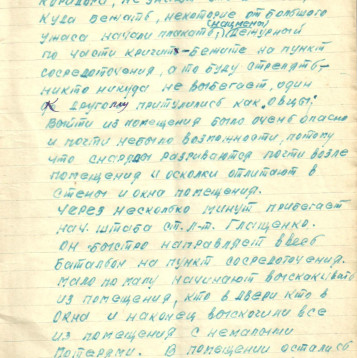 куда бежать, некоторые от большого
ужаса начали плакать, дежурный
по части кричит - Бегите на пункт
сосредоточения, а то буду стрелять -
никто никуда не выбегает, один
к другому притулились как "овцы".
Выйти из помещения было очень опасно
и почти небыло возможности, потому
что снаряды разриваются почти возле
помещения и осколки отлитают в
стены и окна помещения.
Через несколько минут прибегает
нач. штаба ст. л-т. Глищенко.
Он быстро направляет
баталион на пункт сосредоточения.
мало по малу начинают выскакивать
из помещения, кто в двери кто в
окна и наконец выскочили все
из помещения с немалыми
потерями. В помещении остались